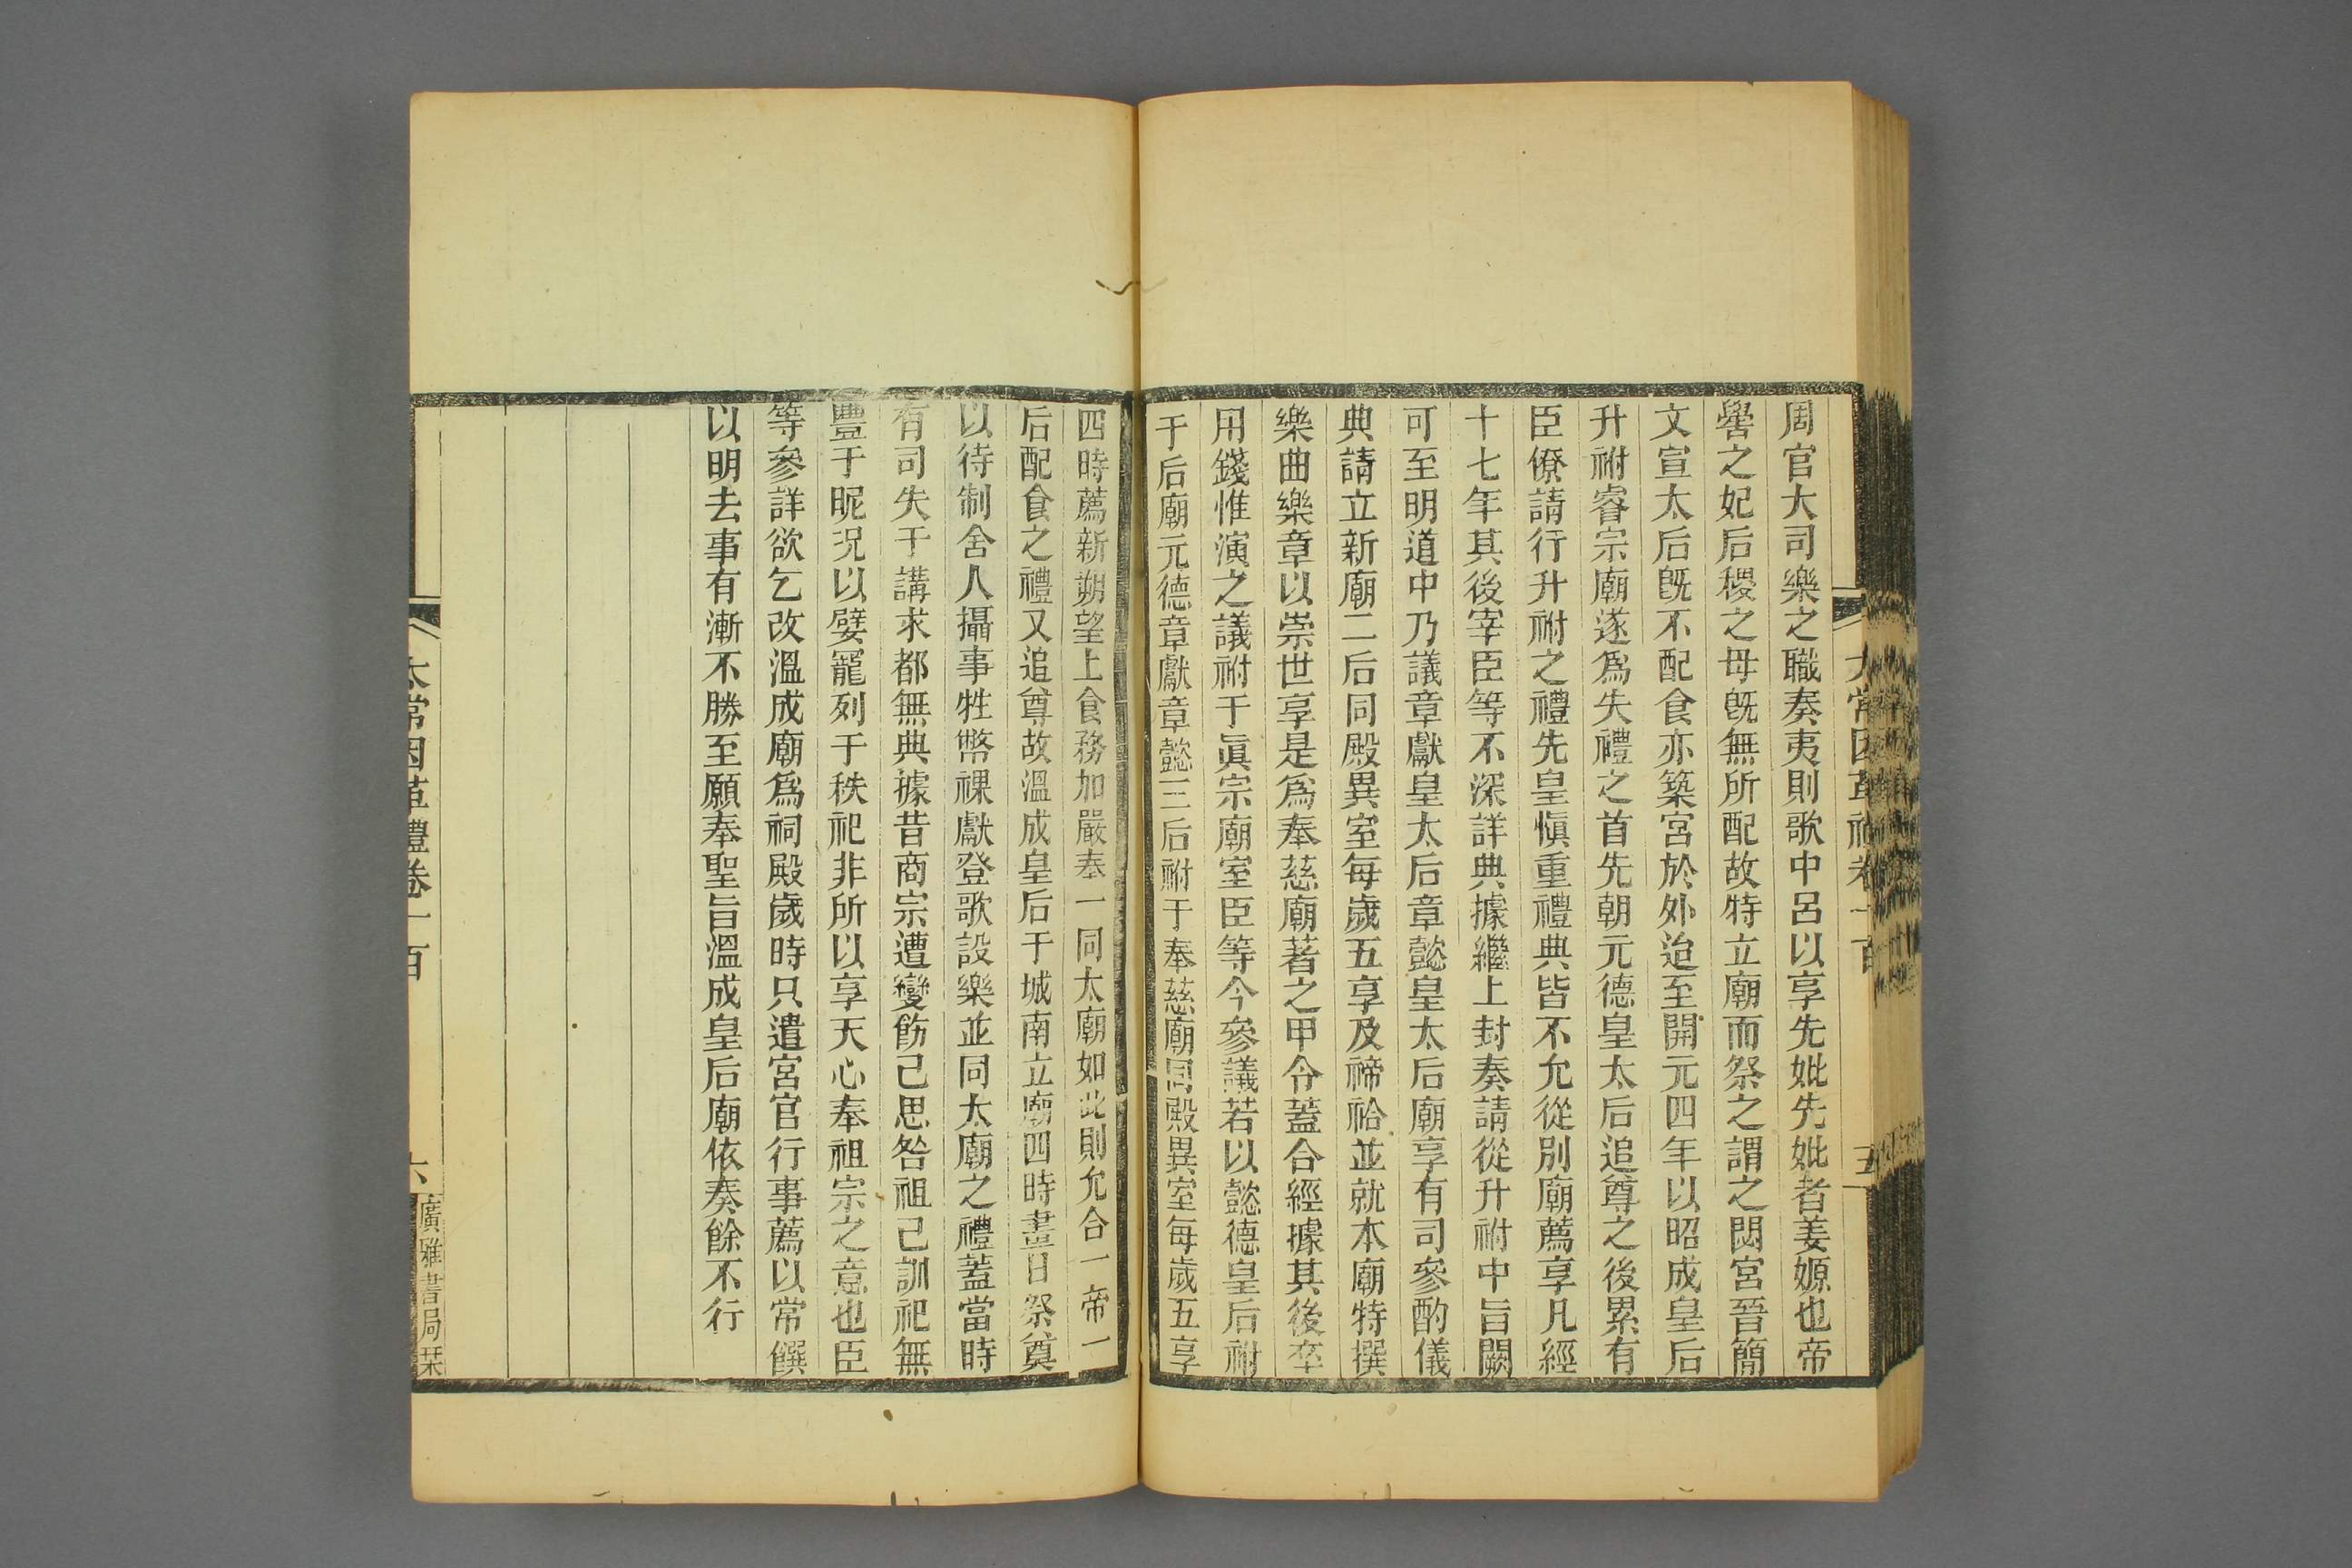 周官大司樂之職奏夷則歌中呂以享先妣先妣者姜嫄也帝
嚳之妃后稷之母旣無所配故特立廟而祭之謂之閟宮晉簡
文宣太后旣不配食亦築宮於外迨至開元四年以昭成皇后
升祔睿宗廟遂爲失禮之首先朝元德皇太后追尊之後累有
臣僚請行升祔之禮先皇愼重禮典皆不允從別廟薦享凡經
十七年其後宰臣等不深詳典據繼上封奏請從升祔中旨闕
可至明道中乃議章獻皇太后章懿皇太后廟享有司參酌儀
典請立新廟二后同殿異室每歲五享及禘祫並就本廟特撰
樂曲樂章以崇世享是爲奉慈廟著之甲令蓋合經據其後卒
用錢惟演之議祔于眞宗廟室臣等今參議若以懿德皇后祔
于后廟元德章獻章懿三后祔于奉慈廟同殿異室每歲五享
四時薦新朔望上食務加嚴奉一同太廟如此則允合一帝一
后配食之禮又追尊故溫成皇后于城南立廟四時晝日祭奠
以待制舍人攝事牲幣祼獻登歌設樂並同太廟之禮蓋當時
有司失于講求都無典據昔商宗遭變飭己思咎祖己訓祀無
豐于昵況以嬖寵列于秩祀非所以享天心奉祖宗之意也臣
等參詳欲乞改溫成廟爲祠殿歲時只遣宮官行事薦以常饌
以明去事有漸不勝至願奉聖旨溫成皇后廟依奏餘不行
太常因革禮卷一百
六
廣雅書局栞